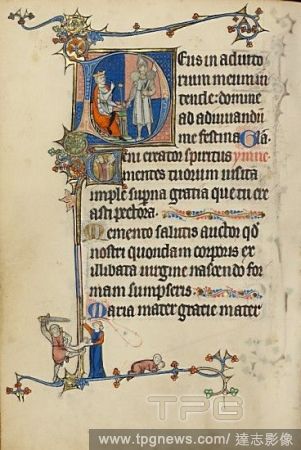 Deus in adiuto
rium meum in
tende: domine
ad adiuuandū
me festina Glā.
Veni creator spiritus ymne
mentes tuorum uisita
imple supna gratia que tu cre
asti pectora.
Memento salutis auctor qd
nostri quondam corporis ex
illibata uirgine nascendo for
mam sumpseris.
Maria mater gracie mater
TPG
www.tpgnews.com/達志影像